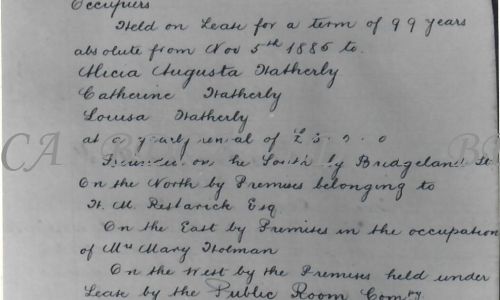 Occupiers
Held on Lease for a term of 99 years
absolute from Nov 5th 1886 to.
Alicia Augusta Hatherly
Catherine Hatherly
Louisa Hatherly
at a yearly rental of £
on the South by Bridgeland St
On the North by Premises belonging to
H. M. Restarick Esq
On the East by Premises in the occupation
of Mrs Mary Holman
On the West by the Premises held under
Lease by the Public Room Compy